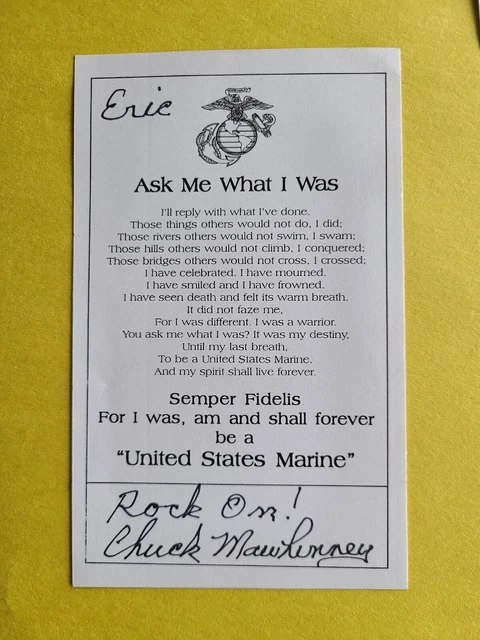 Eric
Ask Me What I Was
I'll reply with what I've done.
Those things others would not do, I did;
Those rivers others would not swim, I swam;
Those hills others would not climb, I conquered;
Those bridges others would not cross, I crossed;
I have celebrated. I have mourned.
I have smiled and I have frowned.
I have seen death and felt its warm breath.
It did not faze me,
For I was different. I was a warrior.
You ask me what I was? It was my destiny,
Until my last breath,
To be a United States Marine.
And my spirit shall live forever.
Semper Fidelis
For I was, am and shall forever
be a
"United States Marine"
Rock On!
Chuck Mawhinney